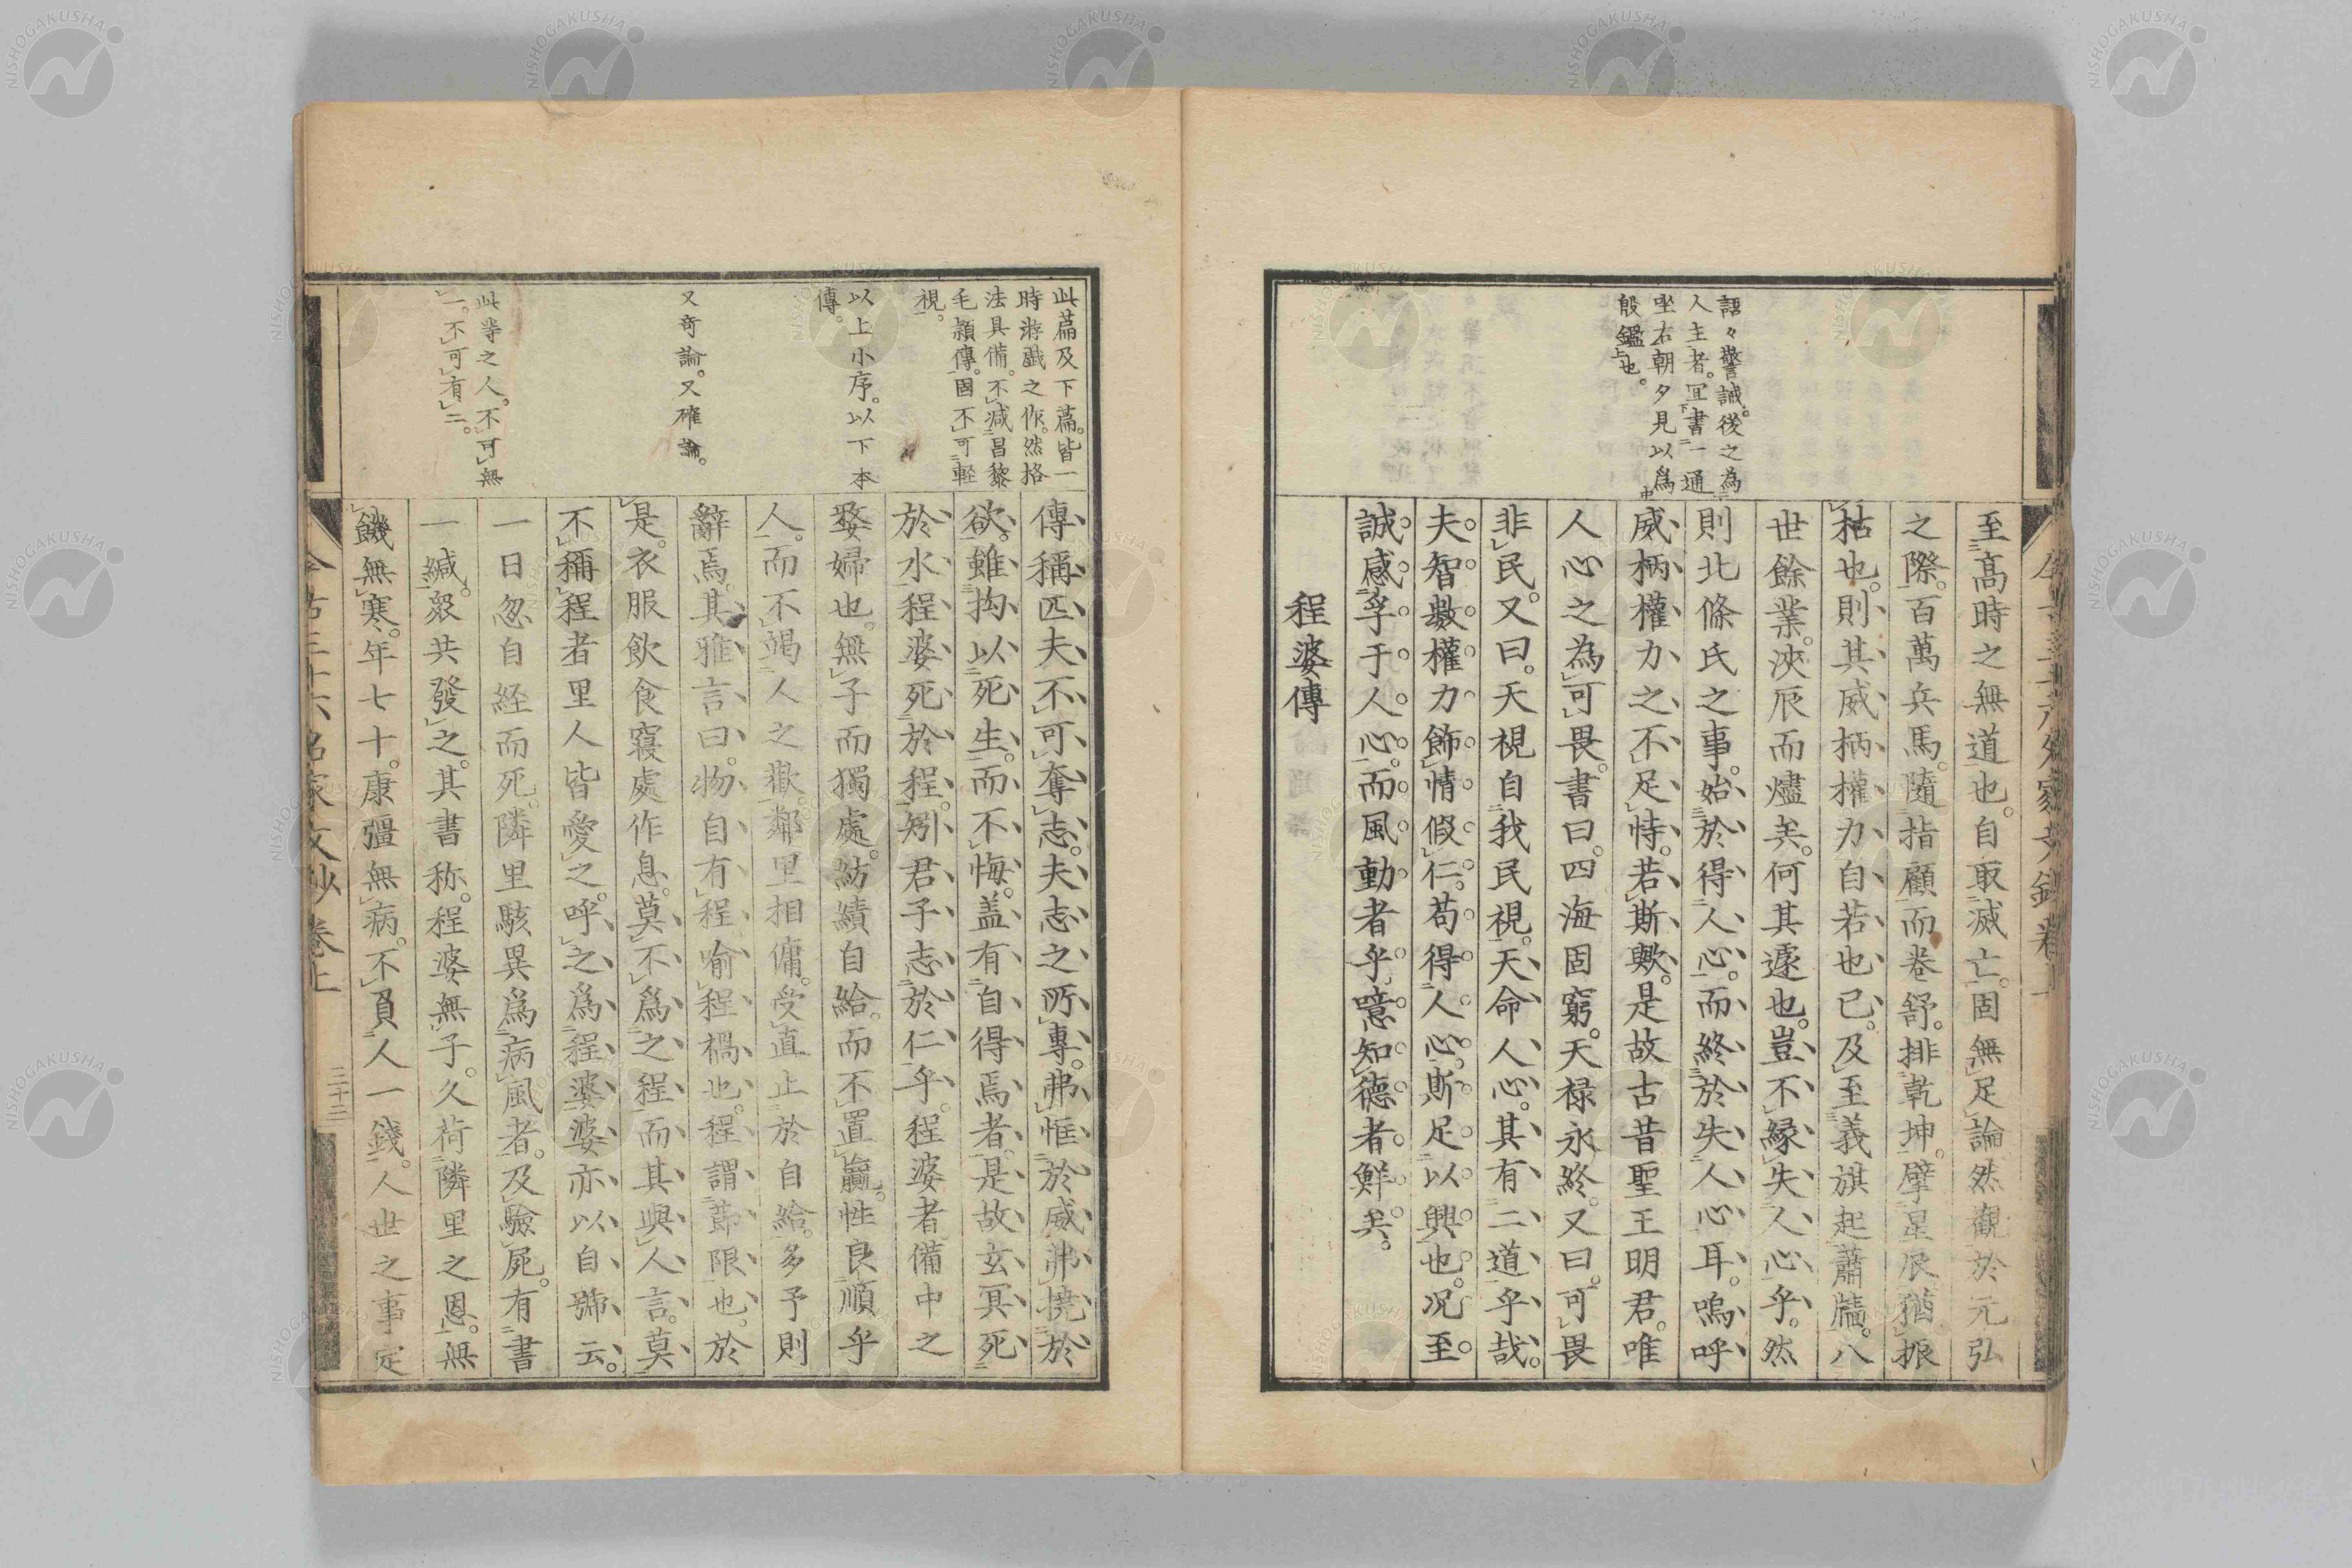 語々警誡。後之為
人主者。冝書一通
坐右朝夕見以爲
殷鑑也。
至高時之無道也。自取滅亡。固無足論然觀於元弘
之際。百萬兵馬。隨指顧而卷舒。排乾坤。擘星辰。猶振
枯也。則其威柄權力自若也已。及至義旗起蕭牆。八
世餘業。浹辰而燼矣。何其遽也。豈不緣失人心乎。然
則北條氏之事。始於得人心。而終於失人心耳。嗚呼
威柄權力之不足恃。若斯歟。是故古昔聖王明君。唯
人心之為可畏。書曰。四海固窮。天禄永終。又曰。可畏
非民。又曰。天視自我民視。天命人心。其有二道乎哉。
夫智數權力飾情假仁。苟得人心。斯足以興也。况至
誠感孚于人心。而風動者乎。噫知德者鮮矣。
程婆傳
此篇及下篇。皆一
時游戲之作。然格
法具備。不減昌黎
毛穎傳。固不可軽
視。
以上小序。以下本
傳。
又奇論。又確論。
此等之人。不可無
一。不可有二。
傳稱匹夫不可奪志。夫志之所專。弗恇於威。弗撓於
欲。雖拘以死生。而不悔。盖有自得焉者。是故玄冥死
於水。程婆死於程。矧君子志於仁乎。程婆者備中之
嫠婦也。無子而獨處。紡績自給。而不置贏。性良順乎
人。而不竭人之歡。鄰里相傭。受直止於自給。多予則
辭焉。其雅言曰。物自有程。喻程禍也。程謂節限也。於
是。衣服飲食寢處作息。莫不爲之程。而其與人言。莫
不稱程者里人皆愛之。呼之爲程婆。婆亦以自號云。
一日忽自経而死。隣里駭異爲病風者。及驗屍。有書
一緘。眾共發之。其書称。程婆無子。久荷隣里之恩。無
饑無寒。年七十。康彊無病。不負人一錢。人世之事定
今古三十六名家文鈔卷上
三十二